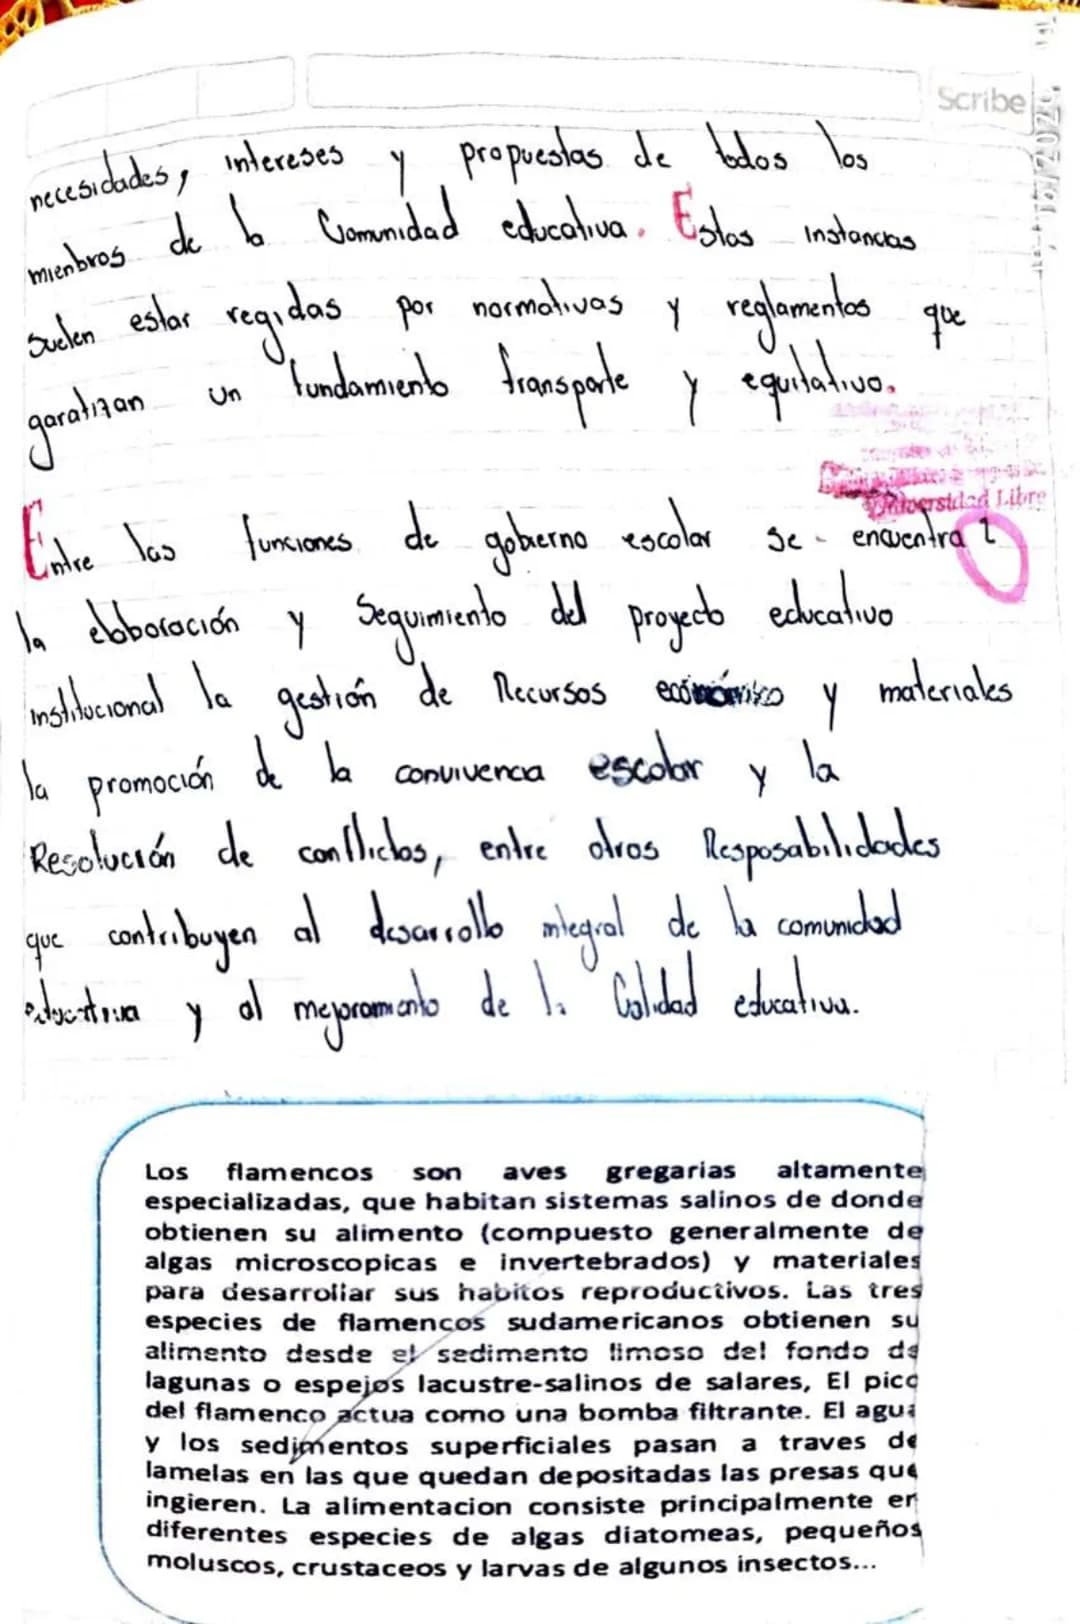 Scribe
necesidades, intereses y propuestas de todos los
mienbros de la Comunidad educativa. Estas instancias
suelen estar regidas por normativas y reglamentos que
garatizan un fundamiento transporte y equitativo.
Universidad Libre
Entre las funciones de gobierno escolar se encuentra
la elaboración y Seguimiento del proyecto educativo
institucional la gestión de Recursos económico y materiales
la promoción de la convivencia escolar y la
Resolución de conflictos, entre otros Resposabilidades
que contribuyen al desarrollo integral de la comunidad
educativa y al mejoramiento de la Calidad educativa.
Los flamencos son aves gregarias altamente
especializadas, que habitan sistemas salinos de donde
obtienen su alimento (compuesto generalmente de
algas microscopicas e invertebrados) y materiales
para desarrollar sus habitos reproductivos. Las tres
especies de flamencos sudamericanos obtienen su
alimento desde el sedimento limoso del fondo de
lagunas o espejos lacustre-salinos de salares, El pico
del flamenco actua como una bomba filtrante. El agua
y los sedimentos superficiales pasan a traves de
lamelas en las que quedan depositadas las presas que
ingieren. La alimentacion consiste principalmente en
diferentes especies de algas diatomeas, pequeños
moluscos, crustaceos y larvas de algunos insectos...